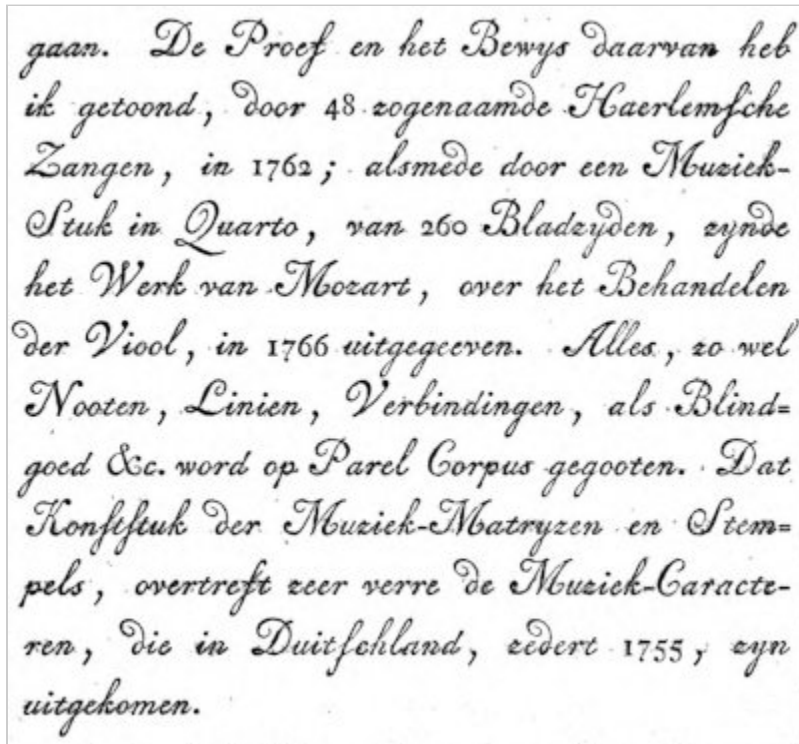 gaan. De Proef en het Bewys daarvan heb
ik getoond, door 48 zogenaamde Haerlemsche
Zangen, in 1762; alsmede door een Muziek-
Stuk in Quarto, van 260 Bladzyden, zynde
het Werk van Mozart, over het Behandelen
der Viool, in 1766 uitgegeeven. Alles, zo wel
Nooten, Linien, Verbindingen, als Blind=
goed &c. word op Parel Corpus gegooten. Dat
Konstſtuk der Muziek-Matryzen en Stem=
pels, overtreft zeer verre de Muziek-Caracte-
ren, die in Duitſchland, zedert 1755, zyn
uitgekomen.